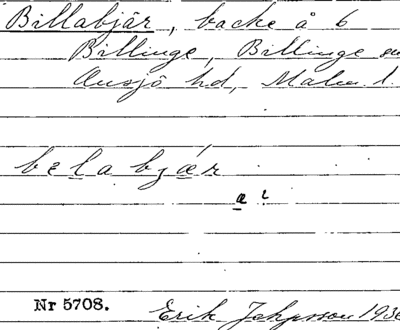 Billabjär, backe å 6
Billinge, Billinge sn
Onsjö hd, Malm. l.
belabjær
æ ?
Nr 5708.
Erik 1936